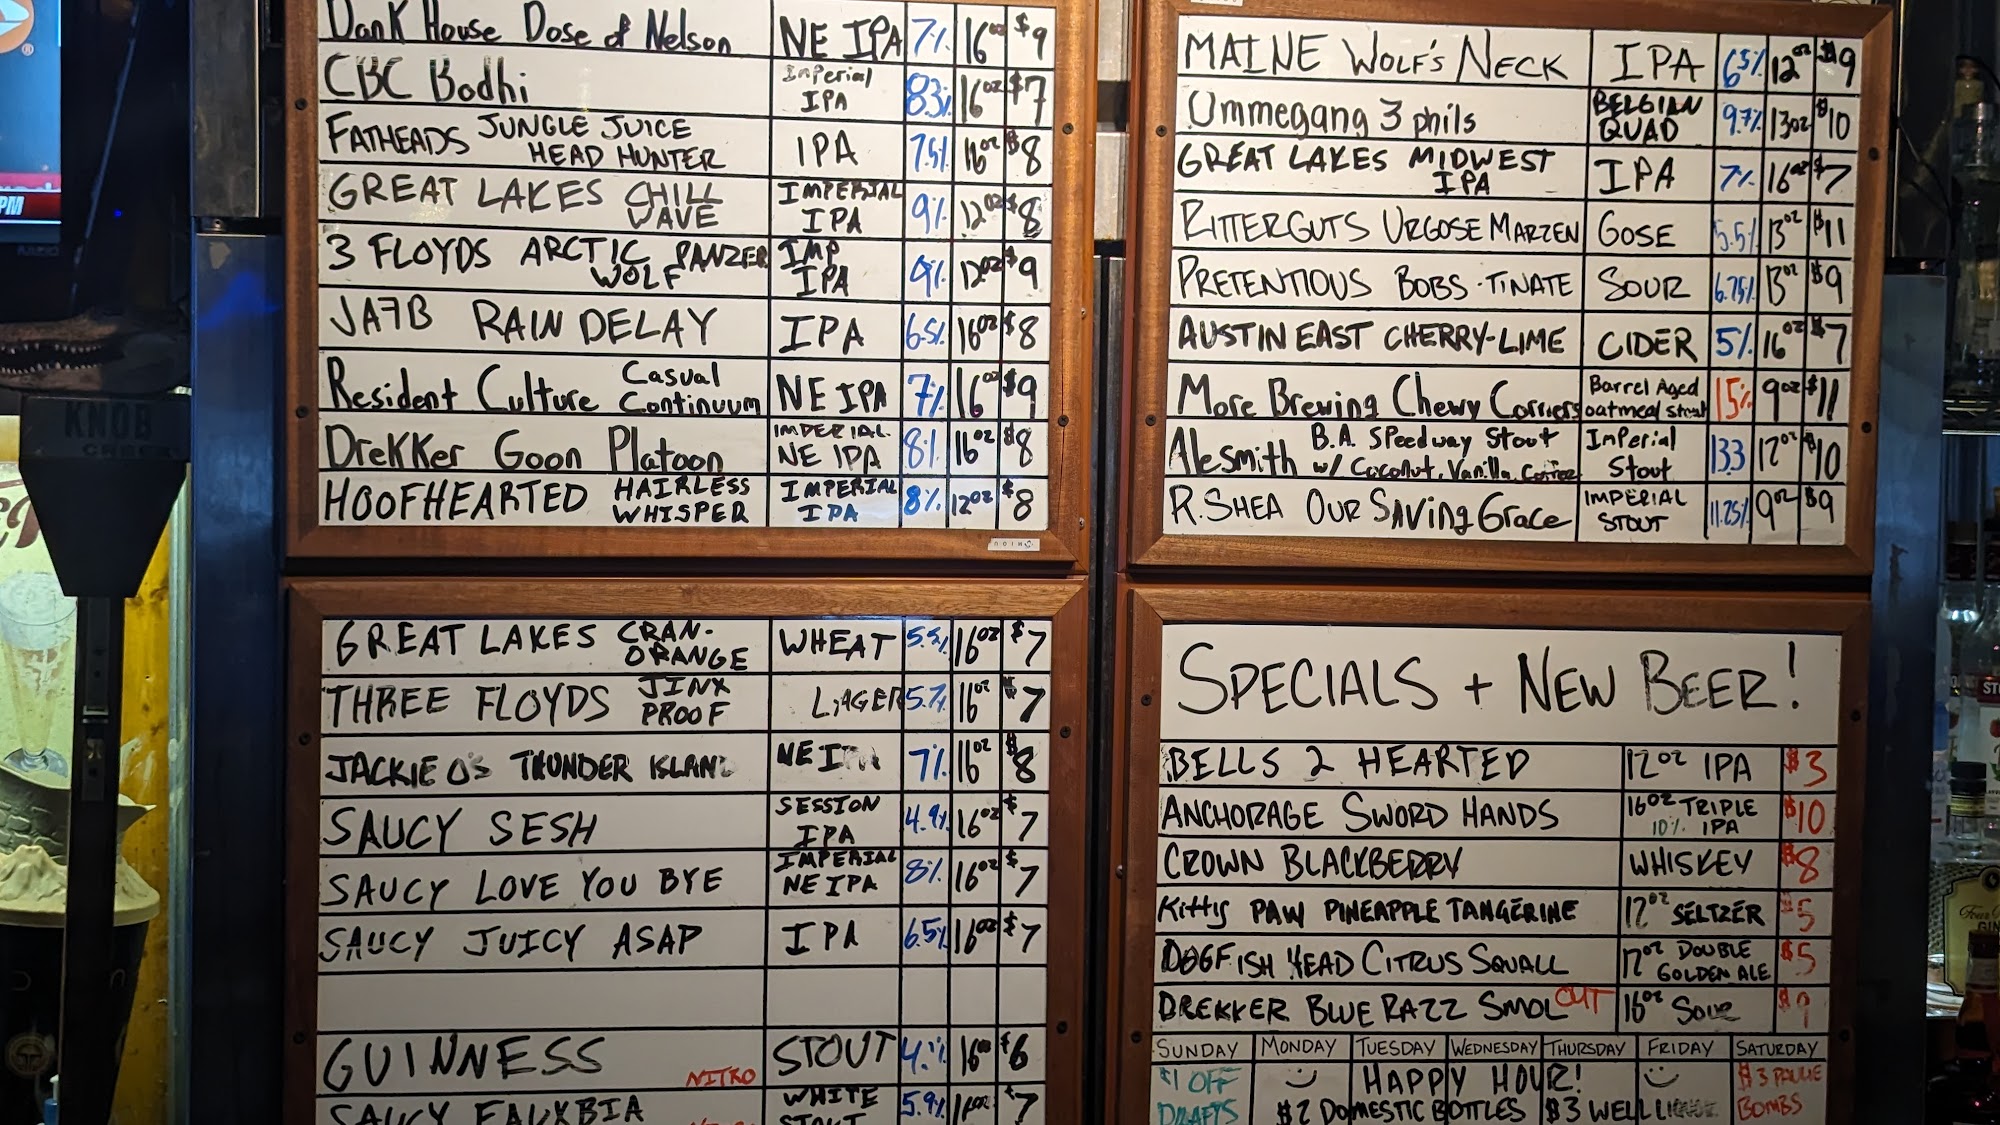 Dank House Dose of Nelson NE IPA 7% 16oz $9
CBC Bodhi Imperial IPA 8.3% 16oz $7
FATHEADS JUNGLE JUICE HEAD HUNTER IPA 7.5% 16oz $8
GREAT LAKES CHILL WAVE IMPERIAL IPA 9% 12oz $8
3 FLOYDS ARCTIC PANZER WOLF IMP IPA 9% 12oz $9
JA7B RAIN DELAY IPA 6.5% 16oz $8
Resident Culture Casual Continuum NE IPA 7% 16oz $9
Drekker Goon Platoon IMPERIAL NE IPA 8% 16oz $8
HOOFHEARTED HAIRLESS WHISPER IMPERIAL IPA 8% 12oz $8
GREAT LAKES CRAN-ORANGE WHEAT 5.5% 16oz $7
THREE FLOYDS JINX PROOF LAGER 5.7% 16oz $7
JACKIE O's THUNDER ISLAND NE IPA 7% 16oz $8
SAUCY SESH SESSION IPA 4.9% 16oz $7
SAUCY LOVE YOU BYE IMPERIAL NE IPA 8% 16oz $7
SAUCY JUICY ASAP IPA 6.5% 16oz $7
GUINNESS NITRO STOUT 16oz $6
SAUCY WHITE STOUT 5.9% 16oz $7
MAINE WOLF'S NECK IPA 6.5% 12oz $9
Ommegang 3 phils BELGIAN QUAD 9.7% 13oz $10
GREAT LAKES MIDWEST IPA IPA 7% 16oz $7
RITTERGUTS URGOSE MARZEN GOSE 5.5% 13oz $11
PRETENTIOUS BOBS-TINATE SOUR 6.75% 13oz $9
AUSTIN EAST CHERRY-LIME CIDER 5% 16oz $7
More Brewing Chewy Corriers Barrel Aged oatmeal stout 15% 9oz $11
Alesmith B.A. Speedway Stout w/ Coconut, Vanilla, Coffee Imperial Stout 13.3 12oz $10
R. SHEA OUR SAVING Grace IMPERIAL STOUT 11.25% 9oz $9
SPECIALS + NEW BEER!
BELLS 2 HEARTED 12oz IPA $3
ANCHORAGE SWORD HANDS 16oz 10% TRIPLE IPA $10
CROWN BLACKBERRY WHISKEY $8
Kitty PAW PINEAPPLE TANGERINE 12oz SELTZER $5
DOGFISH HEAD CITRUS SQUALL 12oz DOUBLE GOLDEN ALE $5
DREKKER BLUE RAZZ SMOL OUT 16oz SOUR $9
SUNDAY MONDAY TUESDAY WEDNESDAY THURSDAY FRIDAY SATURDAY
$1 OFF DRAFTS
HAPPY HOUR!
$2 DOMESTIC BOTTLES $3 WELL LIQUOR
$3 BOMBS
KNOB CREEK
PM